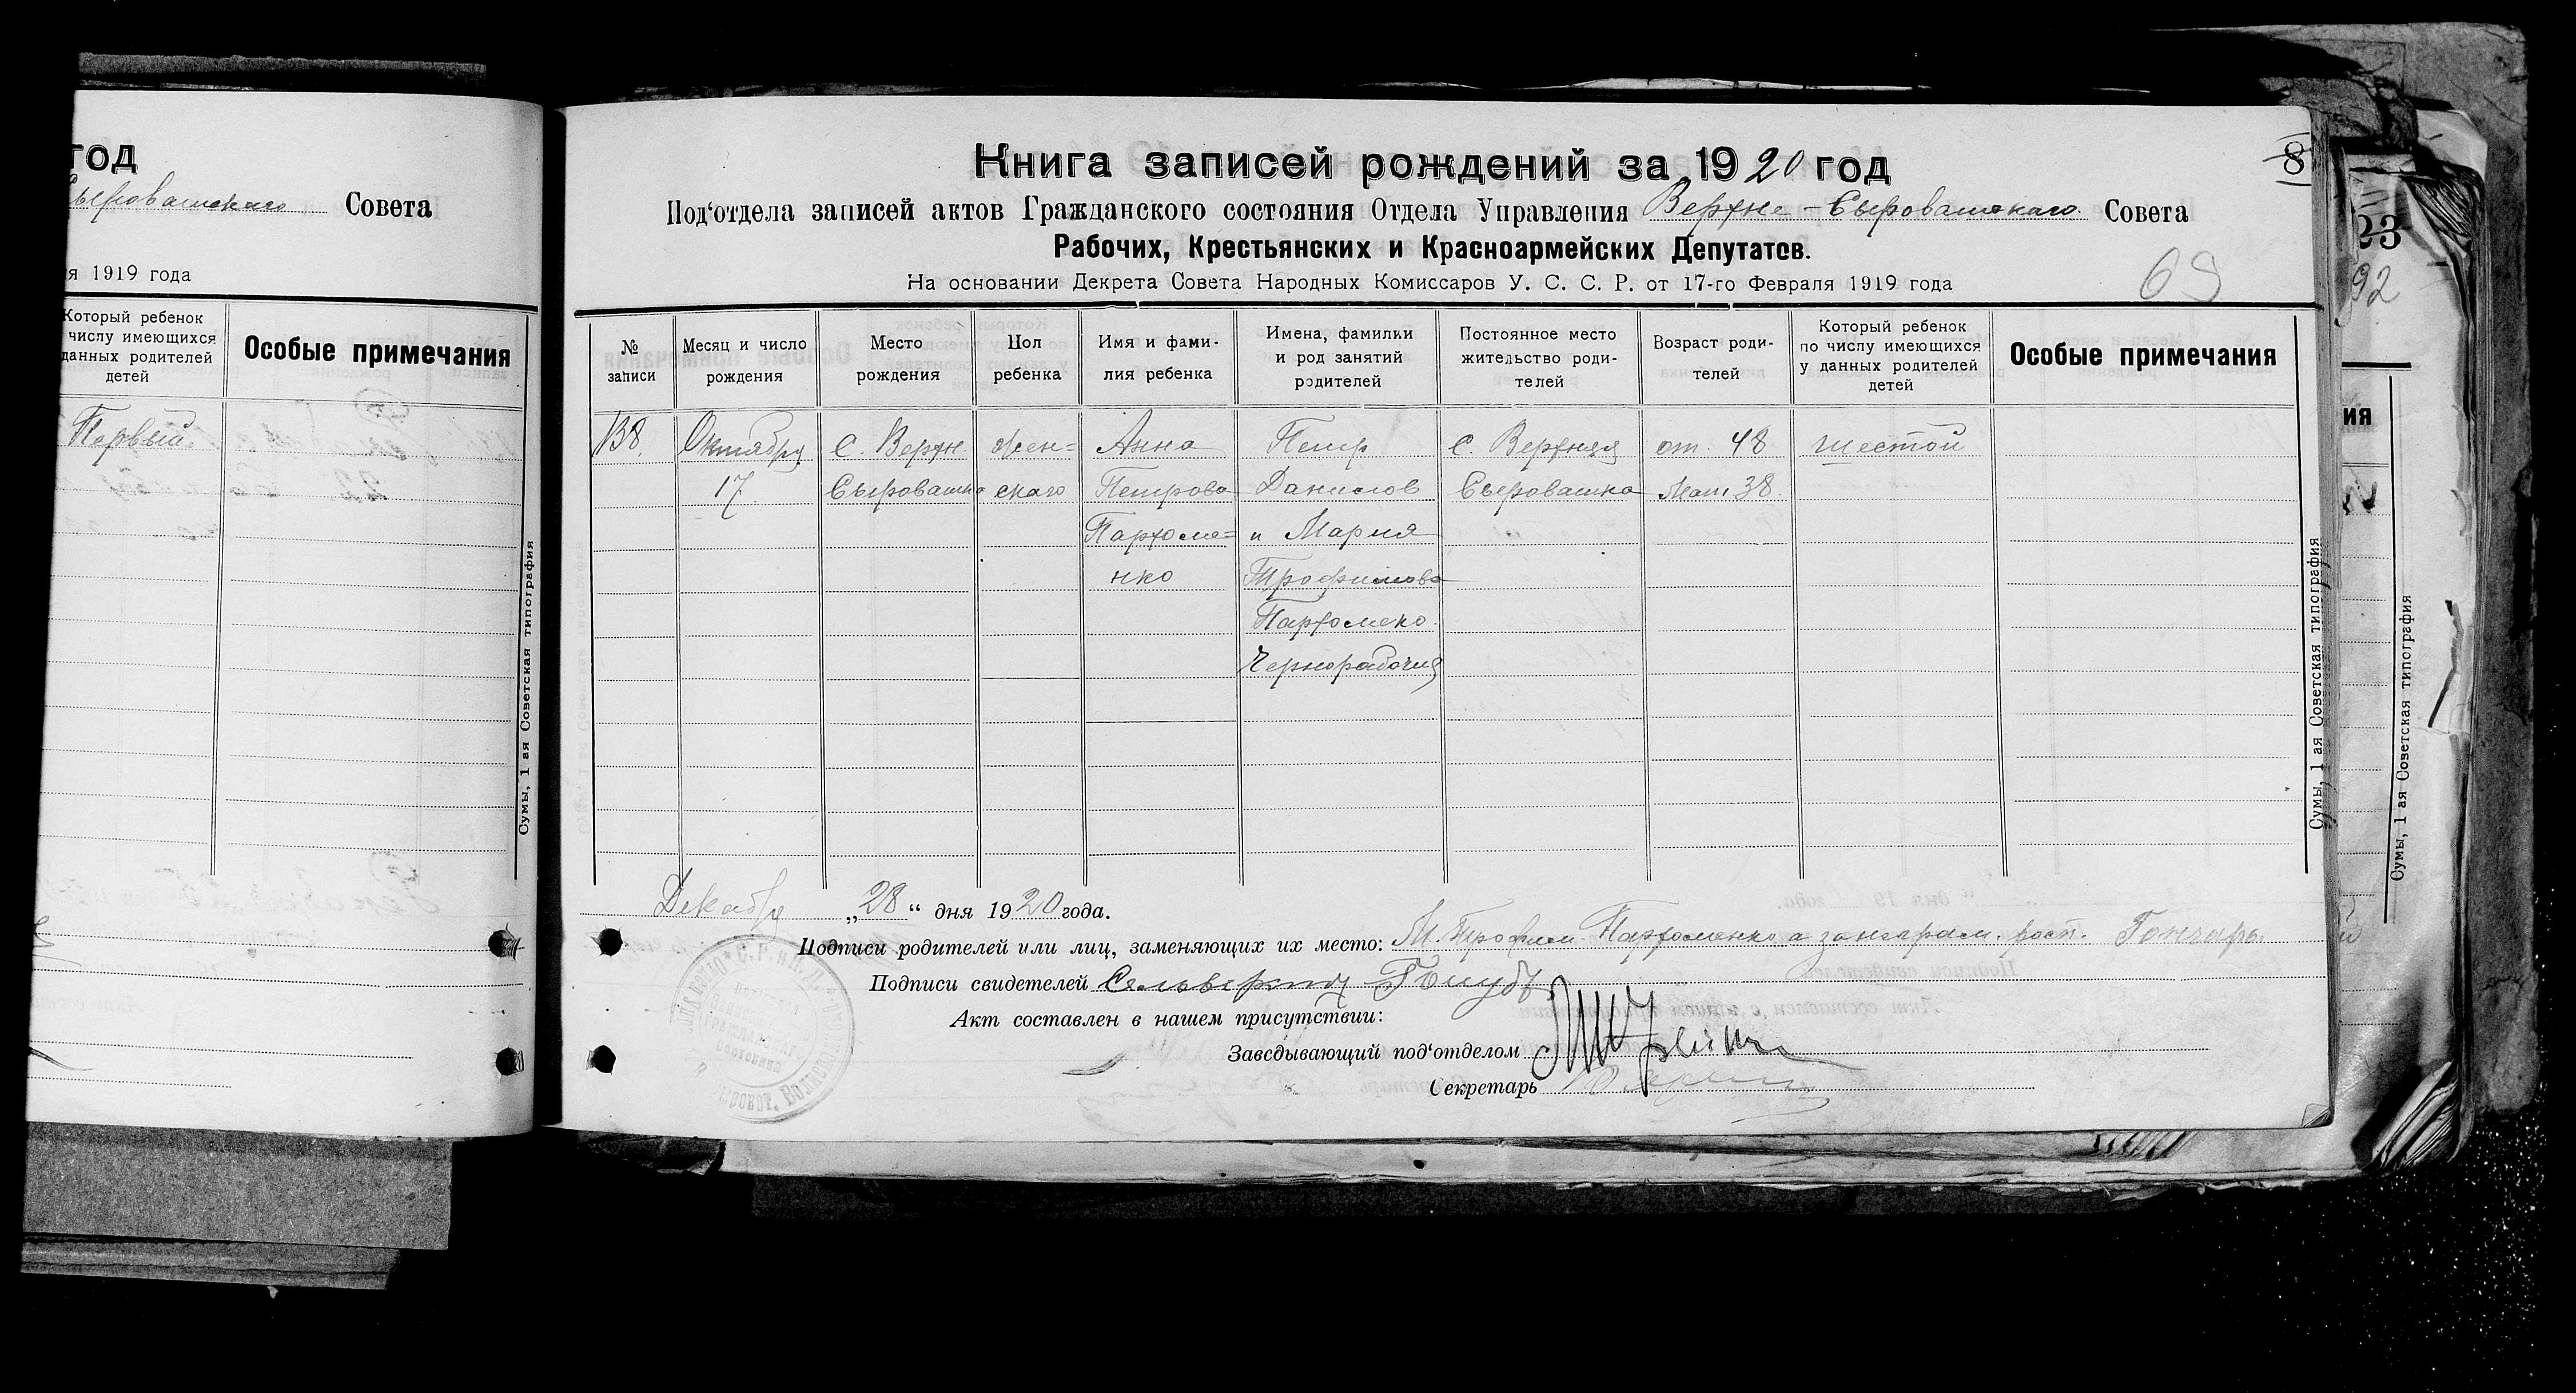 год
Сыроватскаго Совета
я 1919 года
Который ребенок
числу имеющихся
данных родителей
детей
Особые примечания
Первый
Сумы, 1 ая Советская типография
8
Книга записей рождений за 1920 год
Под‘отдела записей актов Гражданского состояния Отдела Управления Верхне-Сыроватскаго Совета
Рабочих, Крестьянских и Красноармейских Депутатов.
На основании Декрета Совета Народных Комиссаров У. С. С. Р. от 17-го Февраля 1919 года
69
№
записи
Месяц и число
рождения
Место
рождения
Пол
ребенка
Имя и фами-
лия ребенка
Имена, фамилии
и род занятий
родителей
Постоянное место
жительство роди-
телей
Возраст роди-
телей
Который ребенок
по числу имеющихся
у данных родителей
детей
Особые примечания
138.
Октября
17
с. Верхн.
Сыроватка
жен=
скаго
Анна
Петрова
Парфоме=
нко
Петр
Данилов
и Мария
Трофимова
Парфомеко.
Чернорабочия
с. Верхняя
Сыроватка
от. 48
Мат. 38.
шестой
Декабря „28“ дня 1920 года.
Подписи родителей или лиц, заменяющих их место: М. Трофим Парфоменко а за неграм. росп. Гончарь
Подписи свидетелей Голубь
Акт составлен в нашем присутствии:
Заведывающий под‘отделом
Секретарь
Сумы, 1 ая Советская типография
23
92
ия
Сумы, 1 ая Советская типография